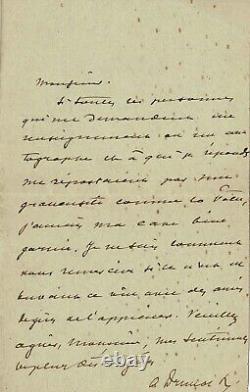 Monsieur.
Si toutes les personnes
qui me demandent un
renseignement ou un au-
tographe et à qui je réponds
me répondaient par une
comme la vôtre,
j'aurais ma cave bien
garnie. Je ne sais comment
vous remercier si ce n'est en
buvant ce vin avec des amis
de l'apprécier. Veuillez
agréer, Monsieur, mes sentiments
A Dumas
© thumbs